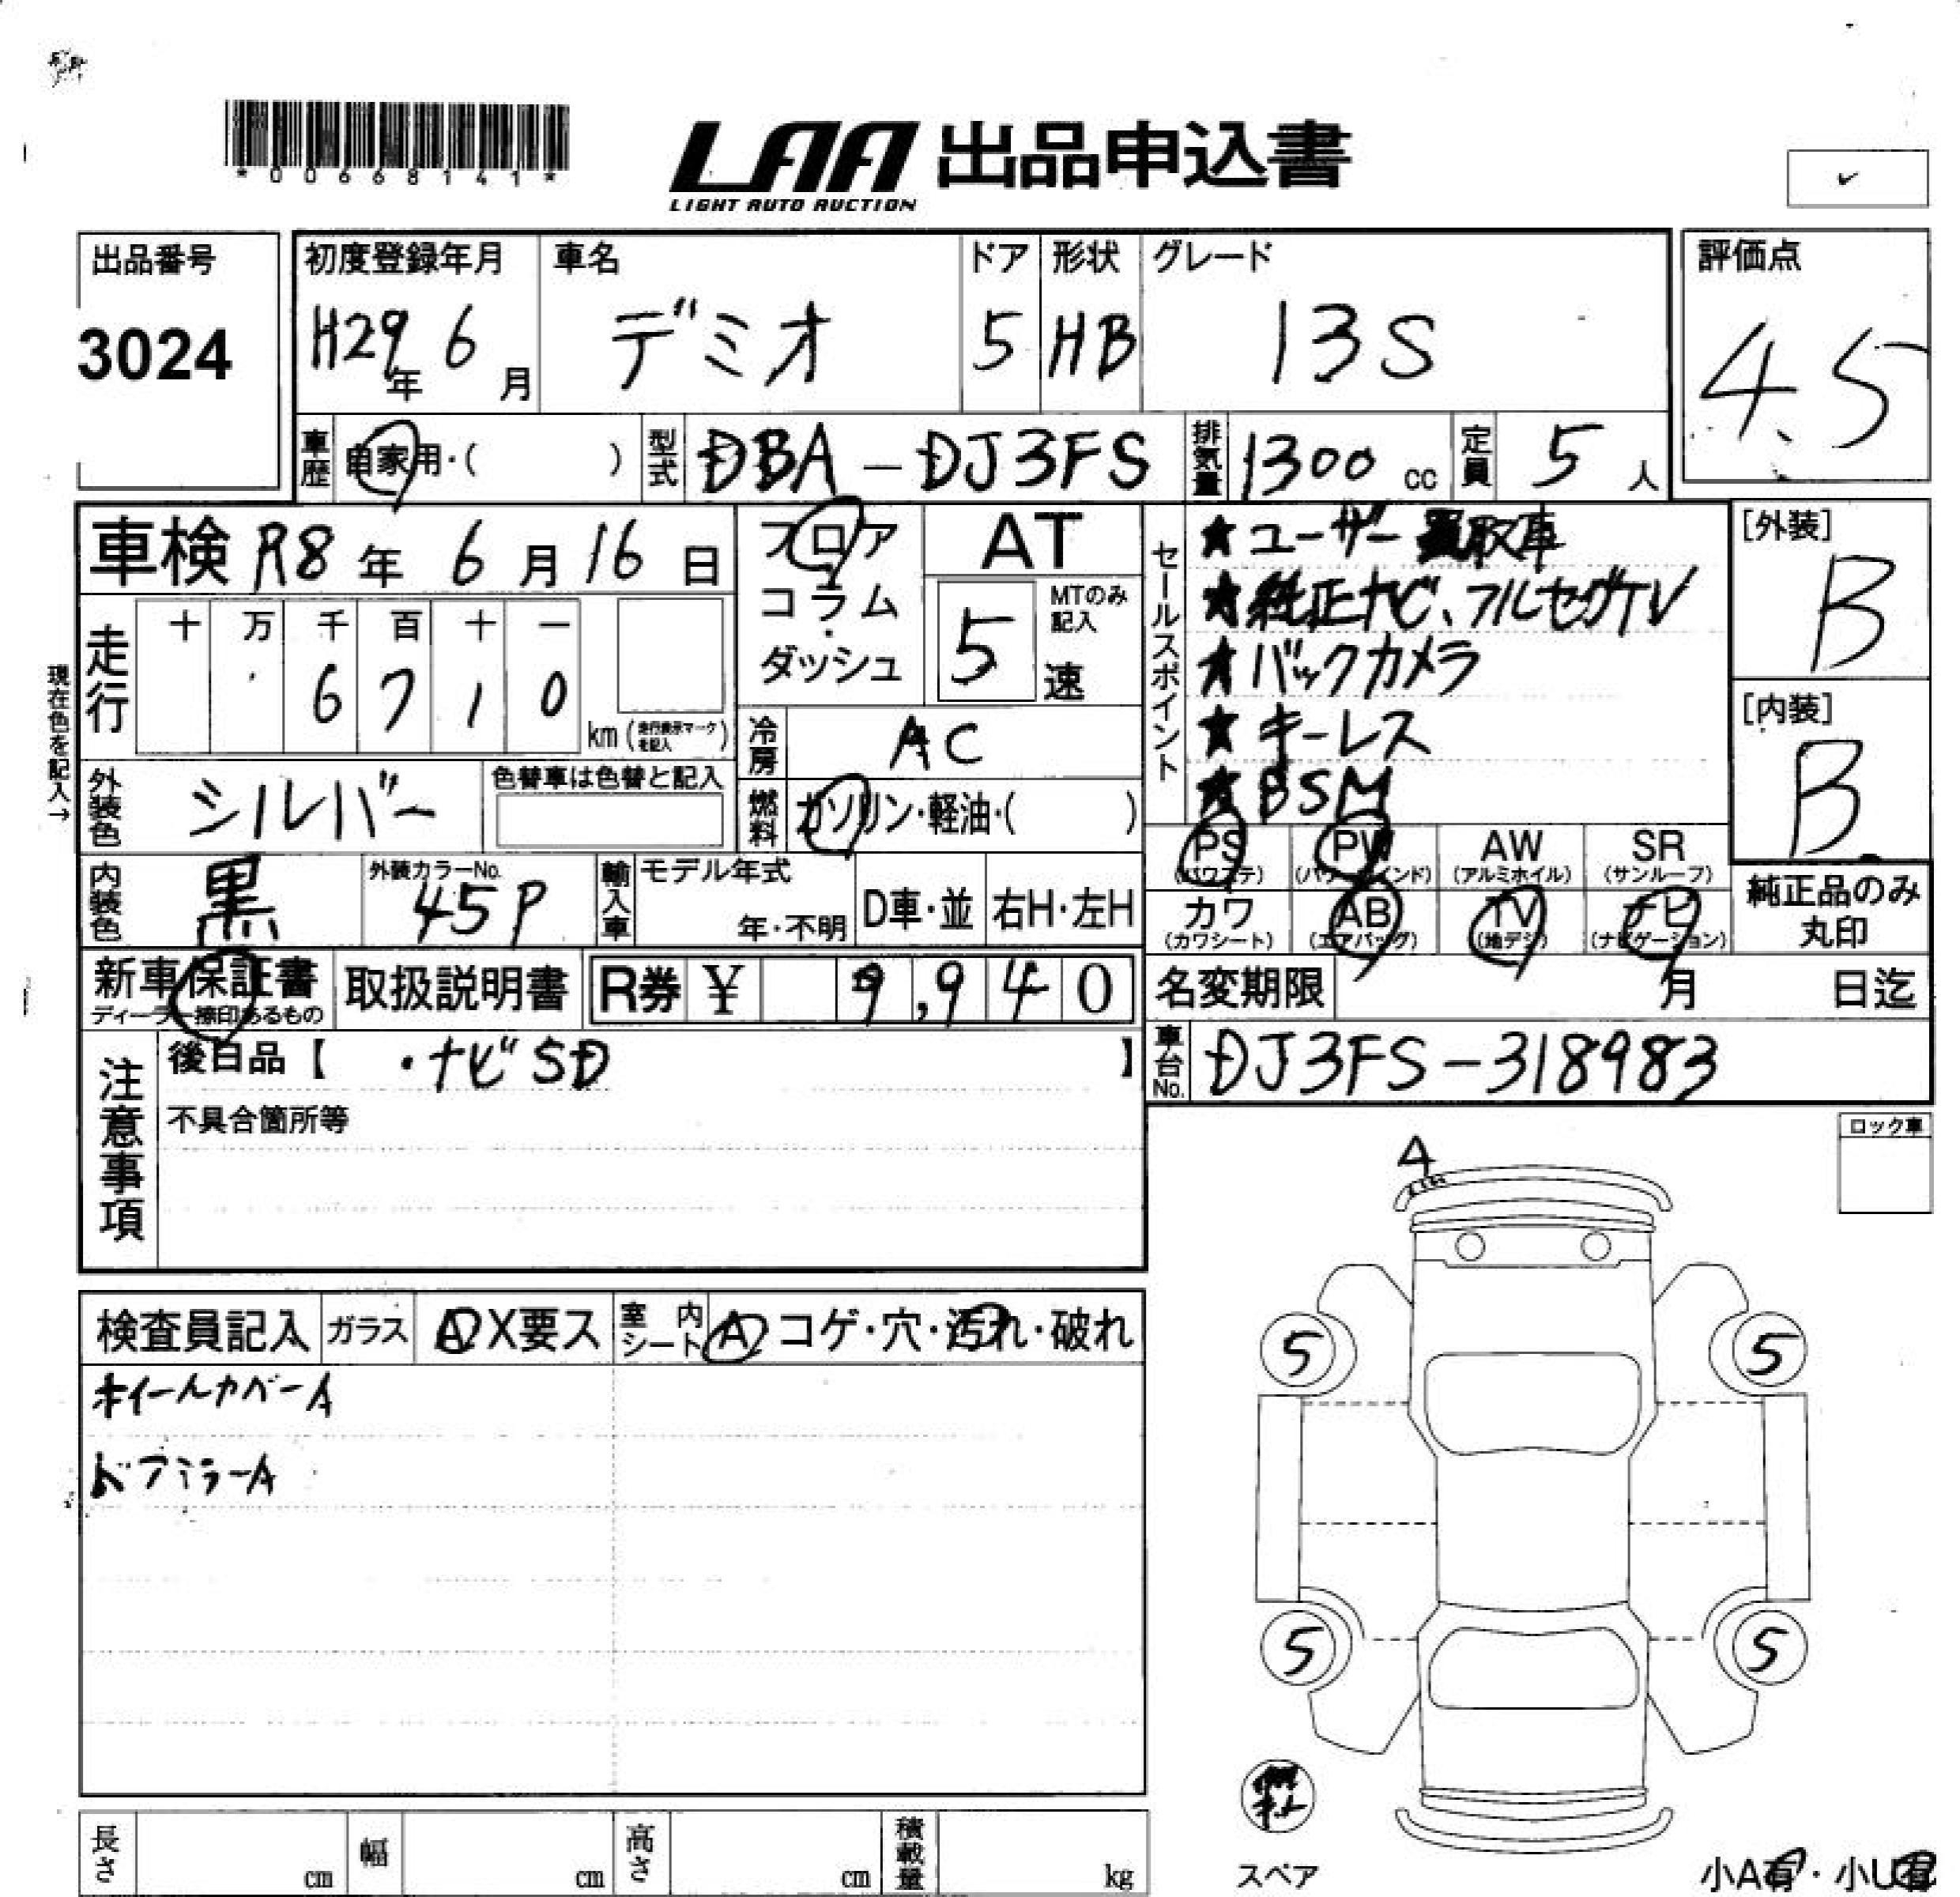 *00668141*
LAA 出品申込書
LIGHT AUTO AUCTION
出品番号
3024
初度登録年月
H29年 6月
車名
デミオ
ドア
5
形状
HB
グレード
13S
評価点
4.5
車歴 自家用・( )
型式 DBA-DJ3FS
排気量 1300 cc
定員 5 人
車検 R8年 6月 16日
走行
十 万 千 百 十 一
6 7 1 0
km (走行表示マークを記入)
現在色を記入→
外装色 シルバー
色替車は色替と記入
内装色 黒
外装カラーNo.
45P
フロア
コラム
・
ダッシュ
AT
5 速
MTのみ記入
冷房 AC
燃料 ガソリン・軽油・( )
輸入車
モデル年式
年・不明
D車・並
右H・左H
セールスポイント
★ユーザー買取車
★純正ナビ、フルセグTV
★バックカメラ
★キーレス
★BSM
[外装]
B
[内装]
B
PS (パワステ)
PW (パワーウインド)
AW (アルミホイル)
SR (サンルーフ)
カワ (カワシート)
AB (エアバッグ)
TV (地デジ)
ナビ (ナビゲーション)
純正品のみ
丸印
新車保証書
ディーラー捺印あるもの
取扱説明書
R券 ¥ 9,940
名変期限 月 日迄
車台No. DJ3FS-318983
注意事項
後日品【 ・ナビSD 】
不具合箇所等
ロック車
検査員記入
ガラス A X要ス
室内シート A コゲ・穴・汚れ・破れ
ホイールカバーA
ドアミラーA
A
5
5
5
5
スペア
小A有・小U有
長さ cm
幅 cm
高さ cm
積載量 kg